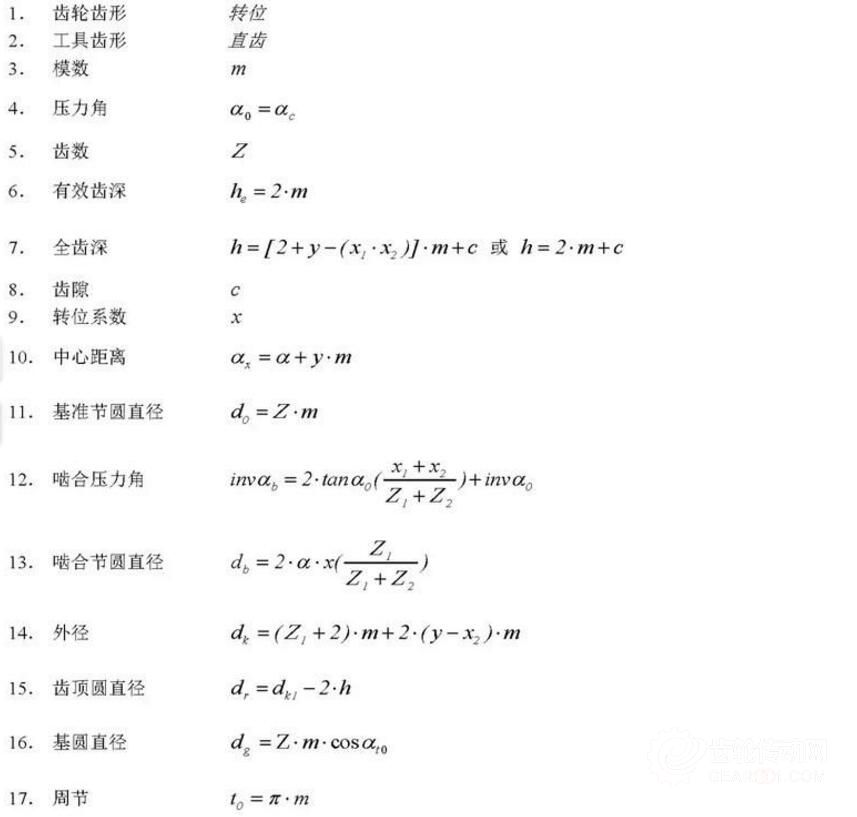 1. 齿轮齿形 转位
2. 工具齿形 直齿
3. 模数 m
4. 压力角 α₀ = α꜀
5. 齿数 Z
6. 有效齿深 hₑ = 2·m
7. 全齿深 h = [2 + y − (x₁ · x₂)] · m + c 或 h = 2·m + c
8. 齿隙 c
9. 转位系数 x
10. 中心距离 αₓ = α + y·m
11. 基准节圆直径 d₀ = Z·m
12. 啮合压力角 invα_b = 2·tanα₀((x₁ + x₂)/(Z₁ + Z₂)) + invα₀
13. 啮合节圆直径 d_b = 2·α·x(Z₁/(Z₁ + Z₂))
14. 外径 dₖ = (Z₁ + 2)·m + 2·(y − x₂)·m
15. 齿顶圆直径 dᵣ = dₖ₁ − 2·h
16. 基圆直径 d_g = Z·m·cosα_t0
齿轮传动网
17. 周节 t₀ = π·m